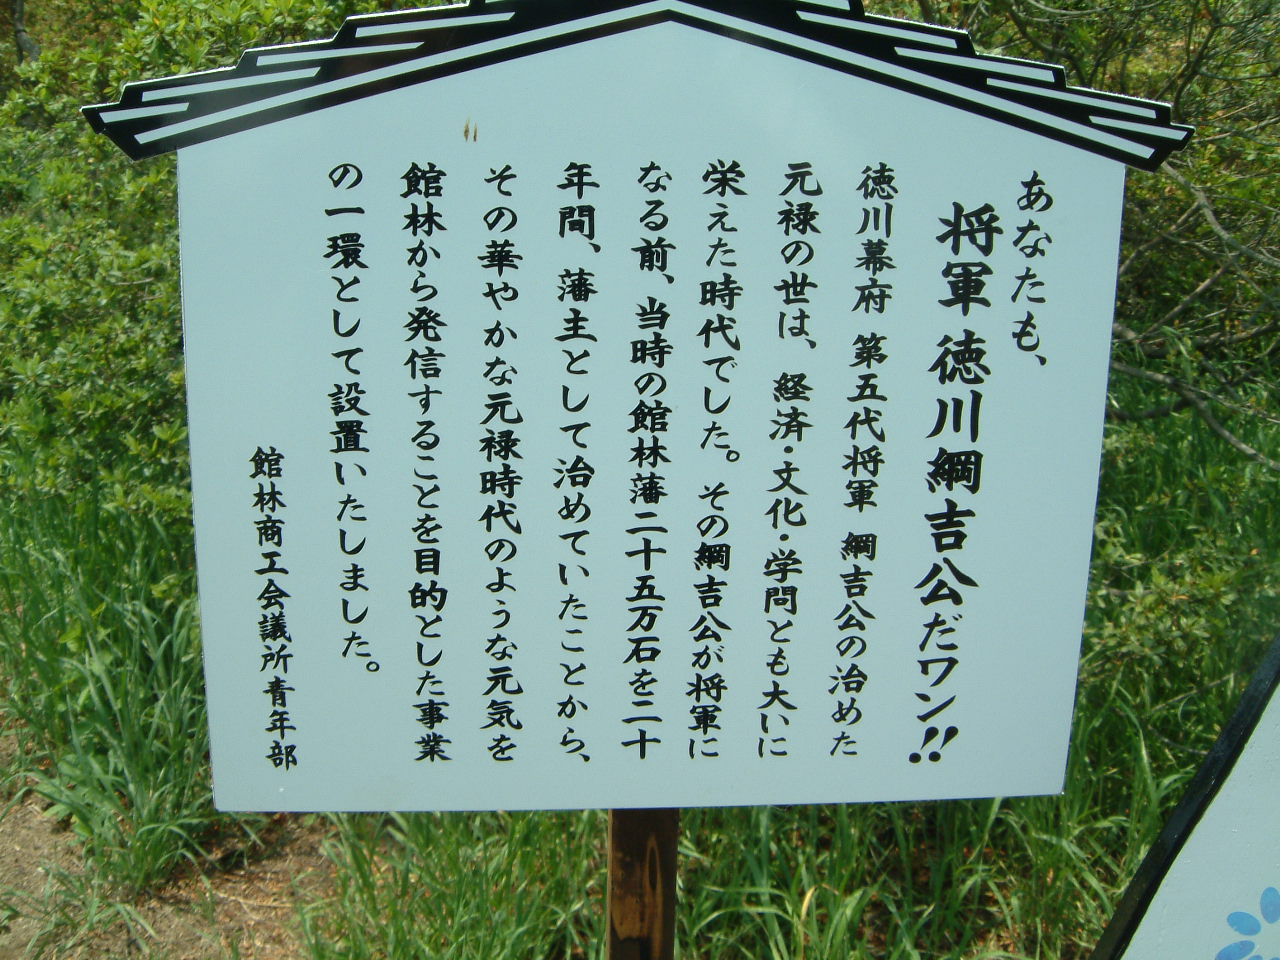 あなたも、
将軍 徳川綱吉公だワン!!
徳川幕府 第五代将軍 綱吉公の治めた
元禄の世は、経済・文化・学問とも大いに
栄えた時代でした。その綱吉公が将軍に
なる前、当時の館林藩二十五万石を二十
年間、藩主として治めていたことから、
その華やかな元禄時代のような元気を
館林から発信することを目的とした事業
の一環として設置いたしました。
館林商工会議所青年部